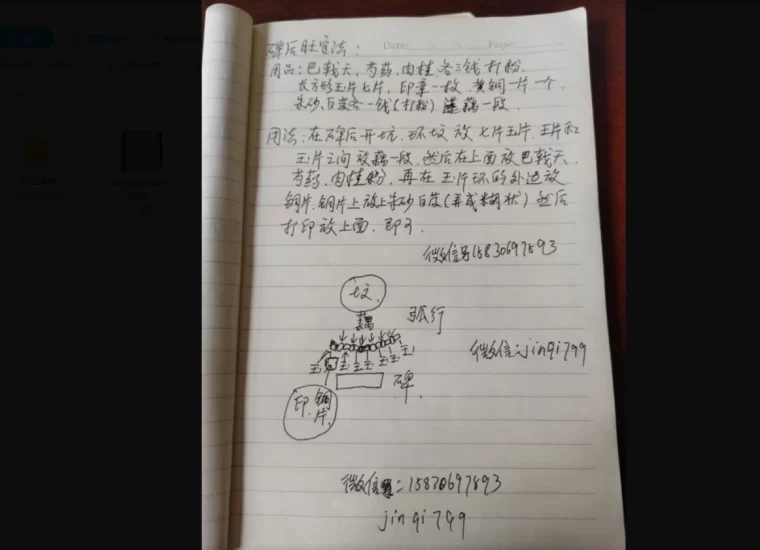 碑后旺官法:
Date: Page:
用品:巴戟天,芍药,肉桂,各三钱打粉.
长方形玉片七片,印章一枚,黄铜一片一个,
朱砂,白芨各一钱(打粉)莲藕一段.
用法:在碑后开坑,环坟放七片玉片,玉片和
玉片之间放藕一段,然后在上面放巴戟天,
芍药,肉桂粉,再在玉片环的外边放
铜片,铜片上放上朱砂白芨(弄成糊状)然后
打印放上面,即可.
微信号15830697893
坟
藕
弧行
玉 玉 玉 玉 玉 玉 玉
微信:jinqi799
碑.
印.铜片
微信:15830697893
jinqi799